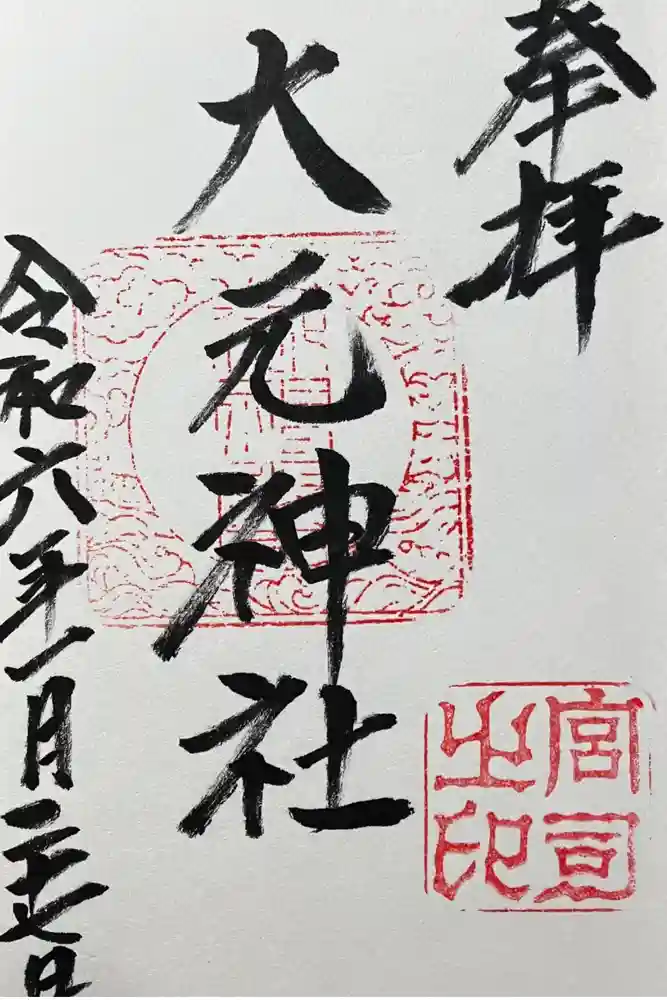 奉拝
大元神社
宮司
之印
令和六年一月二十七日